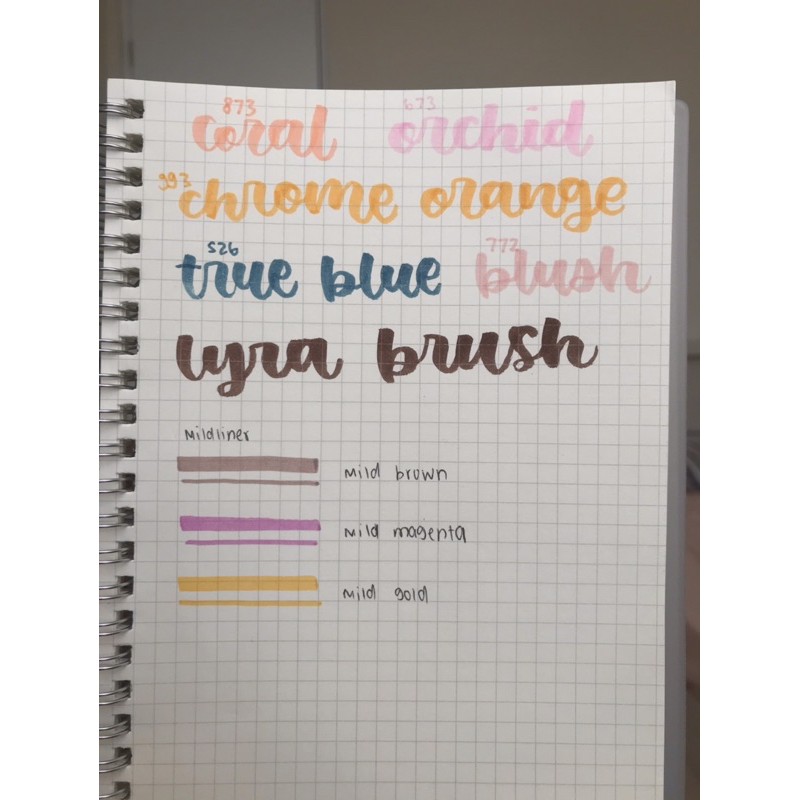 873 673
coral orchid
993
chrome orange
526 772
true blue blush
lyra brush
Mildliner
Mild brown
Mild magenta
Mild gold